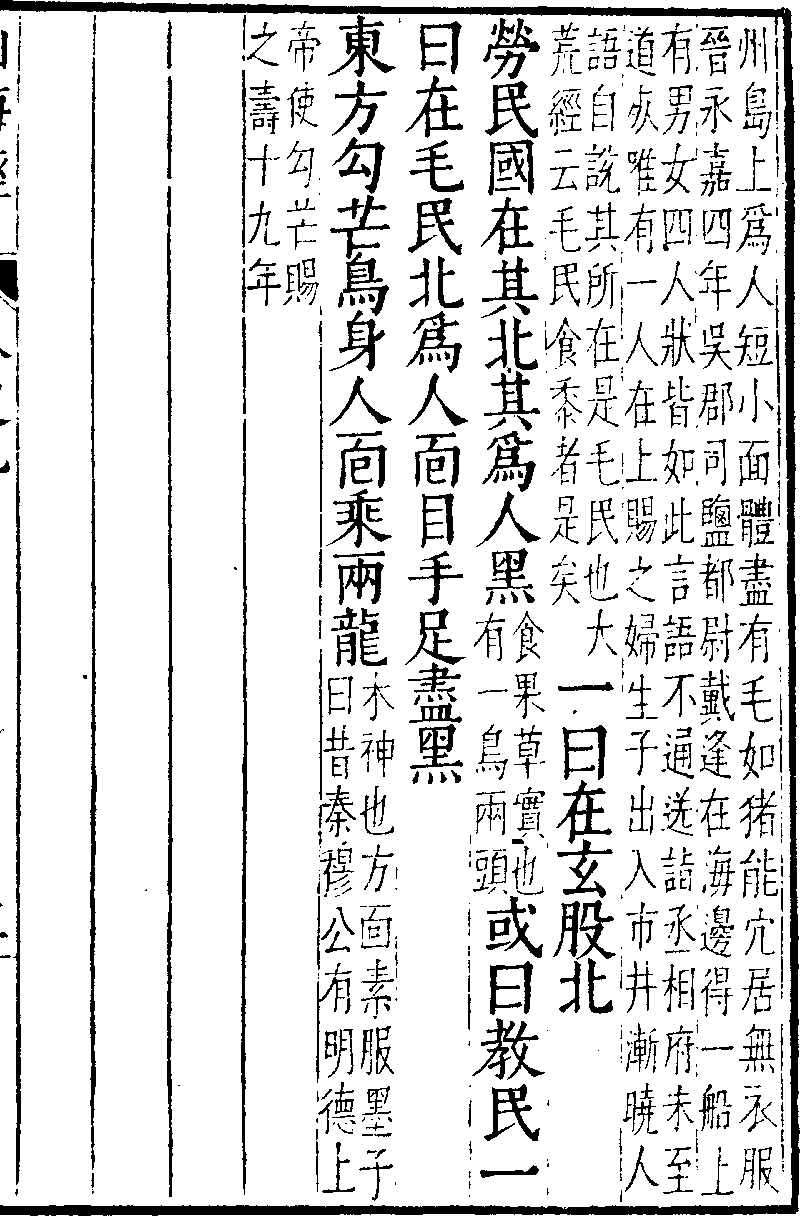 州島上爲人短小面體盡有毛如猪能穴居無衣服
晉永嘉四年吳郡司鹽都尉戴逢在海邊得一船上
有男女四人狀皆如此言語不通送詣丞相府未至
道死唯有一人在上賜之婦生子出入市井漸曉人
語自說其所在是毛民也大
荒經云毛民食黍者是矣
一曰在玄股北
勞民國在其北其爲人黑
食果草實也
有一鳥兩頭
或曰教民一
曰在毛民北爲人面目手足盡黑
東方勾芒鳥身人面乘兩龍
木神也方面素服墨子
曰昔秦穆公有明德上
帝使勾芒賜
之壽十九年